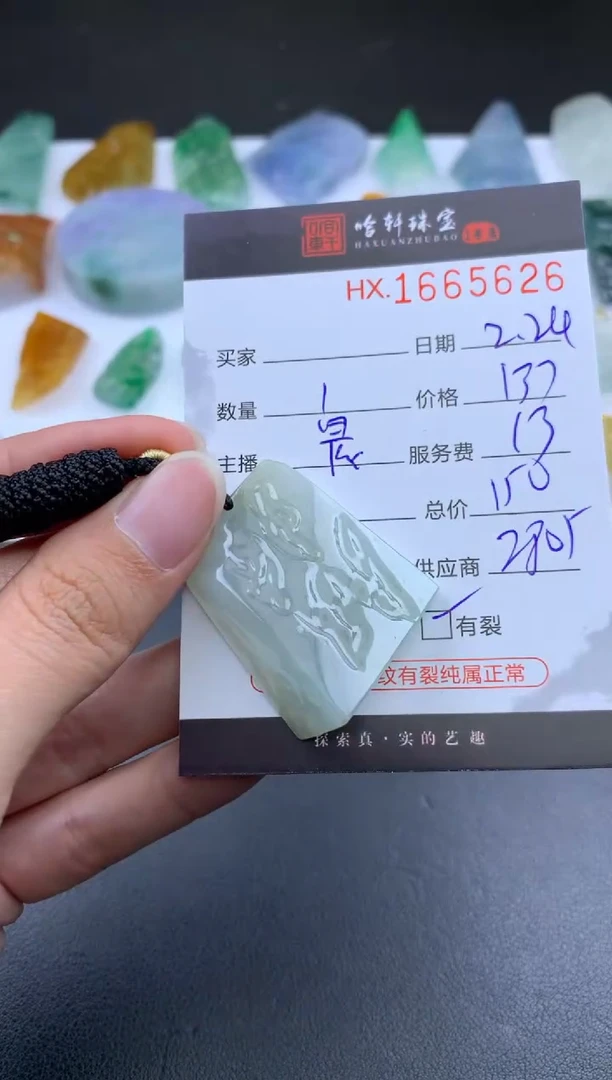 哈轩珠宝
HAXUANZHUBAO
HX.1665626
买家 日期 2.24
数量 1 价格 137
主播 晨 服务费 13
总价 150
供应商 2805
有裂
纹有裂纯属正常
探索真·实的艺趣